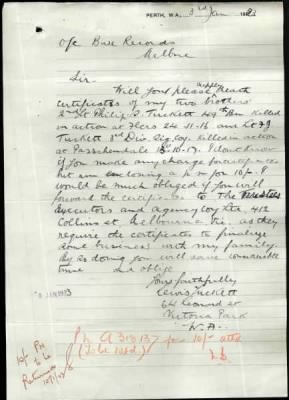 PERTH, W.A., 3rd Jan 1923
O/c Base Records
Melbne
Sir
Will you please supply death
certificates of my two brothers
2nd Lt Philip S. Tuckett 49th Bn Killed
in action at Flers 24-11-16 and Lt F J
Tuckett 3rd Div. Sig. Coy. killed in action
at Passchendale 13-10-17. I dont know
if you make any charge for certificates
but am enclosing a p.n for 10/-. I
would be much obliged if you will
forward the certificates to The Trustees
Executors and Agency Coy Ltd, 412
Collins st Melbourne Vic, as they
require the certificates to finalise
some business with my family.
By so doing you will save considerable
time and oblige
Yours faithfully
Lewis Tuckett
64 Leonard st
Victoria Park
W.A.
10/- PN
to be
Returned
P.N. A 31317 for 10/- attd
(To be retd.)